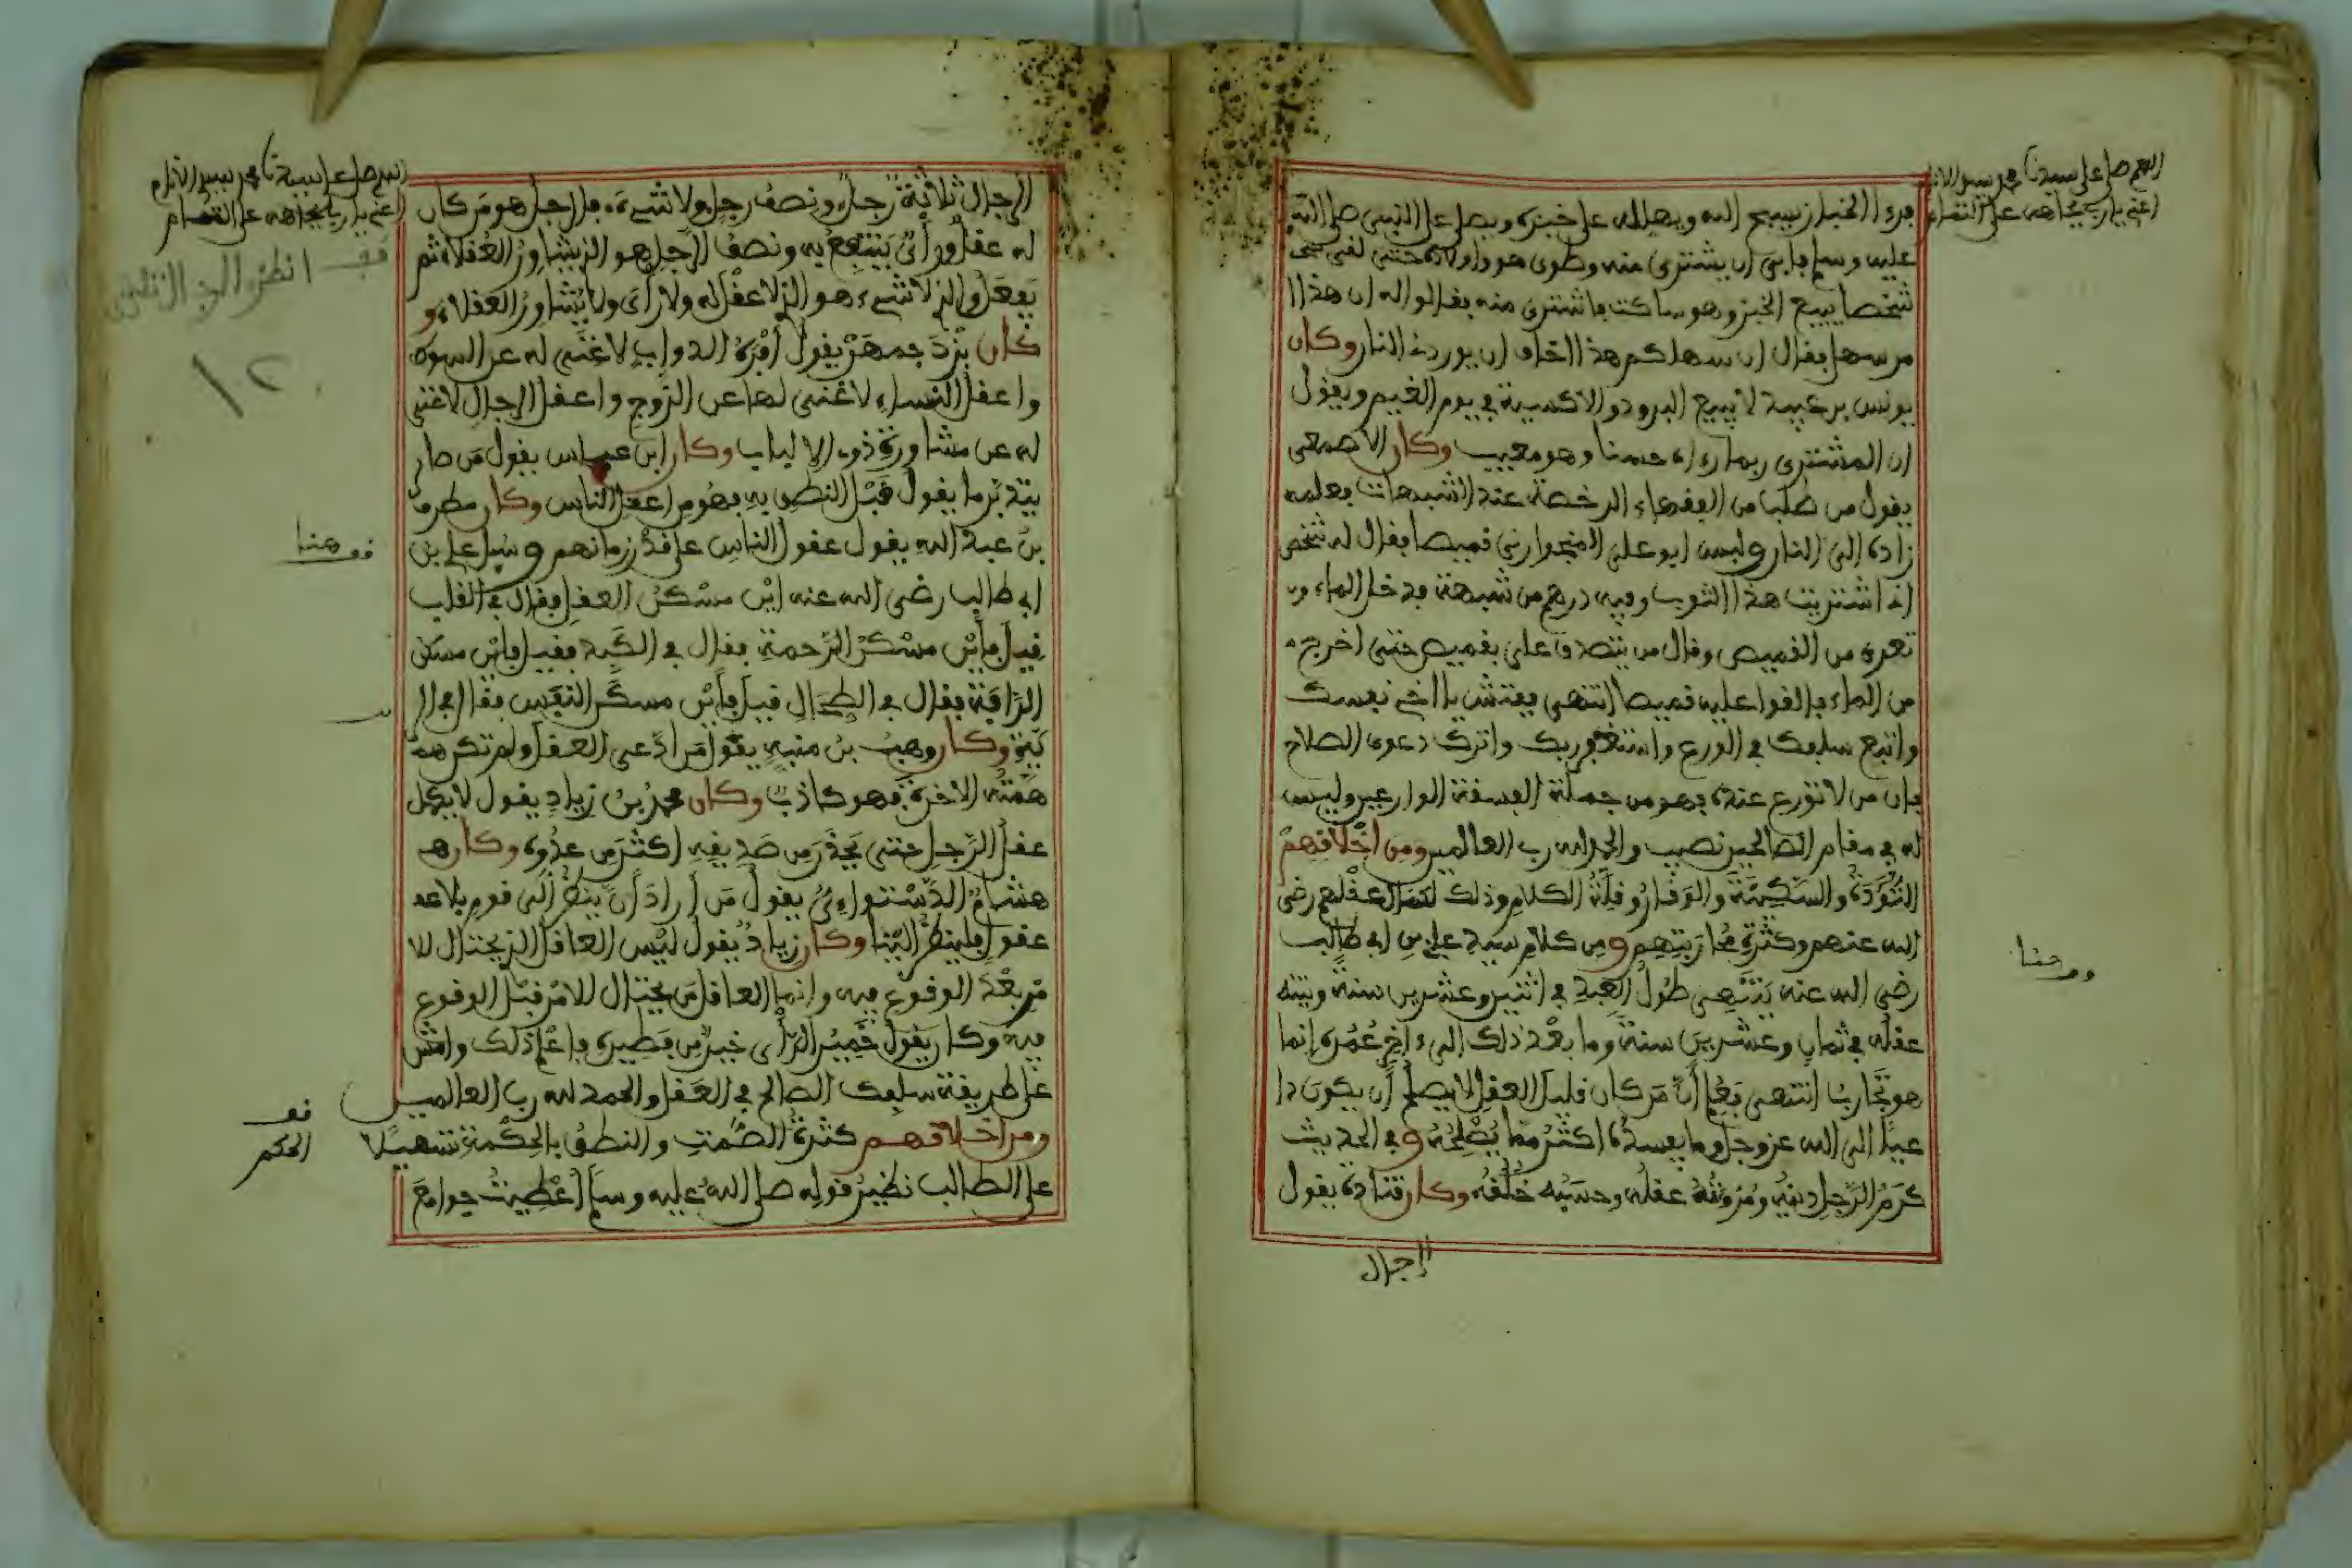 اللهم صل على سيدنا محمد سيد الانام
اغثني يا رب بجاهه على التمام
فرءا الخباز يسبح الله ويهلله على خبزه ويصلي على النبي صلى الله
عليه وسلم فابى ان يشتري منه وطوى هو واولاده حتى لقي
شخصا يبيع الخبز وهو ساكت فاشترى منه فقالوا له ان هذا ا
من سهل فقال ان سهلكم هذا اخاف ان يوردني النار وكان
يونس بن عبيد لا يبيع البرود والاكسية في يوم الغيم ويقول
ان المشتري ربما رءاه حسنا وهو معيب وكان الاصمعي
يقول من طلب من الفقهاء الرخصة عند الشبهات فعلمه
زاده الى النار ولبس ابو علي قميصا فقال له شخص
اشتريت هذا الثوب وفيه درهم من شبهة فدخل الماء و
تعرى من القميص وقال من يتصدق علي بقميص حتى اخرج
من الماء فالقوا عليه قميصا انتهى ففتش يا اخي نفسك
واتبع سلفك في الورع واستغفر ربك واترك دعوى الصلاح
فان من لا تورع عنده فهو من جملة الفسقة وليس
له في مقام الصالحين نصيب والحمد لله رب العالمين ومن اخلاقهم
التُّؤَدَةُ والسَّكِينَةُ والوَقَارُ وقلَّةُ الكلام وذلك لكمال عقلهم رضي
الله عنهم وكثرة تجاربتهم ومن كلام سيدي علي بن ابي طالب
رضي الله عنه ينتهي طُولُ العبد في اثنين وعشرين سنة وينته
عقله في ثمان وعشرين سنة وما بعد ذلك الى ءاخر عُمُره انما
هو تجارب انتهى فعُلم أنَّ مَن كان قليل العقل لا يصلح أن يكون دا
عيا الى الله عز وجل وما يفسده اكثر مما يُصْلِحُه وفي الحديث
كَرَمُ الرَّجل دينُه ومُرُوءَتُهُ عقلُه وحسَبُه خُلُقُه وكان قتادة يقول
الرجال
اللهم صل على سيدنا محمد سيد الانام
اغثني يا رب بجاهه على التمام
الرجال ثلاثة رَجلٌ ونصف رجل ولا شيء فالرجل هو من كان
له عقلٌ ورأيٌ يَنتفِعُ به ونصفُ الرَّجل هو الذي يشاورُ العُقَلاء ثم
يَفعَل والذي لا شيء هو الذي لا عقل له ولا رأي ولا يُشاورُ العقلاء و
كان بُزُرْجمهر يقول أفْرَهُ الدوابِ لا غنى له عن السوط
واعقل النساء لا غنى لها عن الزوج واعقل الرجال لا غنى
له عن مشاورة ذوي الالباب وكان ابن عباس يقول من صار
يتدبَّر ما يقول قبل النطق به فهو من اعقل الناس وكان مطرف
بنُ عبد الله يقول عقول الناس على قدْر زمانهم وسُئل علي بن
ابي طالب رضي الله عنه اين مسكنُ العقل فقال في القلب
قيل فأَين مسكن الرَّحمة فقال في الكَبِد فقيل فاين مسكن
الرَّأفة فقال في الطِّحال قيل فأَين مسكن النفَس فقال في الر
ئة وكان وهبُ بنُ منبه يقول من ادَّعى العقل ولم تكن هم
همَّته الاخرة فهو كاذب وكان محمدُ بنُ زيادٍ يقول لا يكمل
عقل الرَّجل حتى يَحذَر من صَديقه اكثر من عدُوه وكان هـ
هشامٌ الدَّسْتوَاءي يقول مَن أرادَ أن ينظُر الى قوم بلا عد
عقول فلينظُر الينا وكان زيادٌ يقول ليس العاقل الذي يحتال للا
مر بعد الوقوع فيه وانما العاقل من يحتال للامر قبل الوقوع
فيه وكان يقول خَميرُ الرَّأي خيرٌ من فَطيره فاعلم ذلك وامش
على طريقة سلفك الصالح في العقل والحمد لله رب العالمين
ومن اخلاقهم كثرةُ الصَّمتِ والنطقُ بالحِكْمة تسهيلا
على الطالب نظيرُ قوله صلى الله عليه وسلم أُعْطِيتُ جوامعَ
قف
الحكم